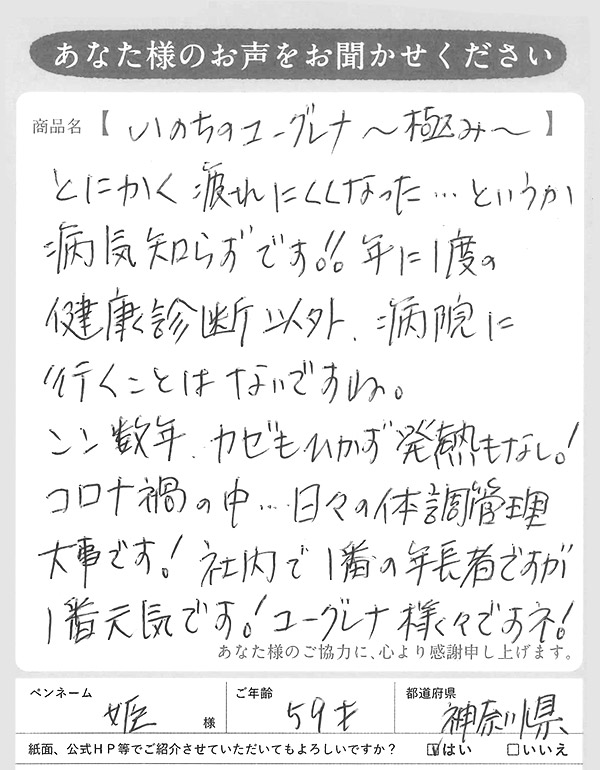 あなた様のお声をお聞かせください
商品名【 いのちのユーグレナ〜極み〜 】
とにかく疲れにくくなった…というか
病気知らずです!! 年に1度の
健康診断以外、病院に
行くことはないですね。
ここ数年、カゼもひかず発熱もなし!
コロナ禍の中…日々の体調管理
大事です! 社内で1番の年長者ですが
1番元気です! ユーグレナ様々ですネ!
あなた様のご協力に、心より感謝申し上げます。
ペンネーム 姫 様 ご年齢 59才 都道府県 神奈川県
紙面、公式HP等でご紹介させていただいてもよろしいですか? ☑はい □いいえ